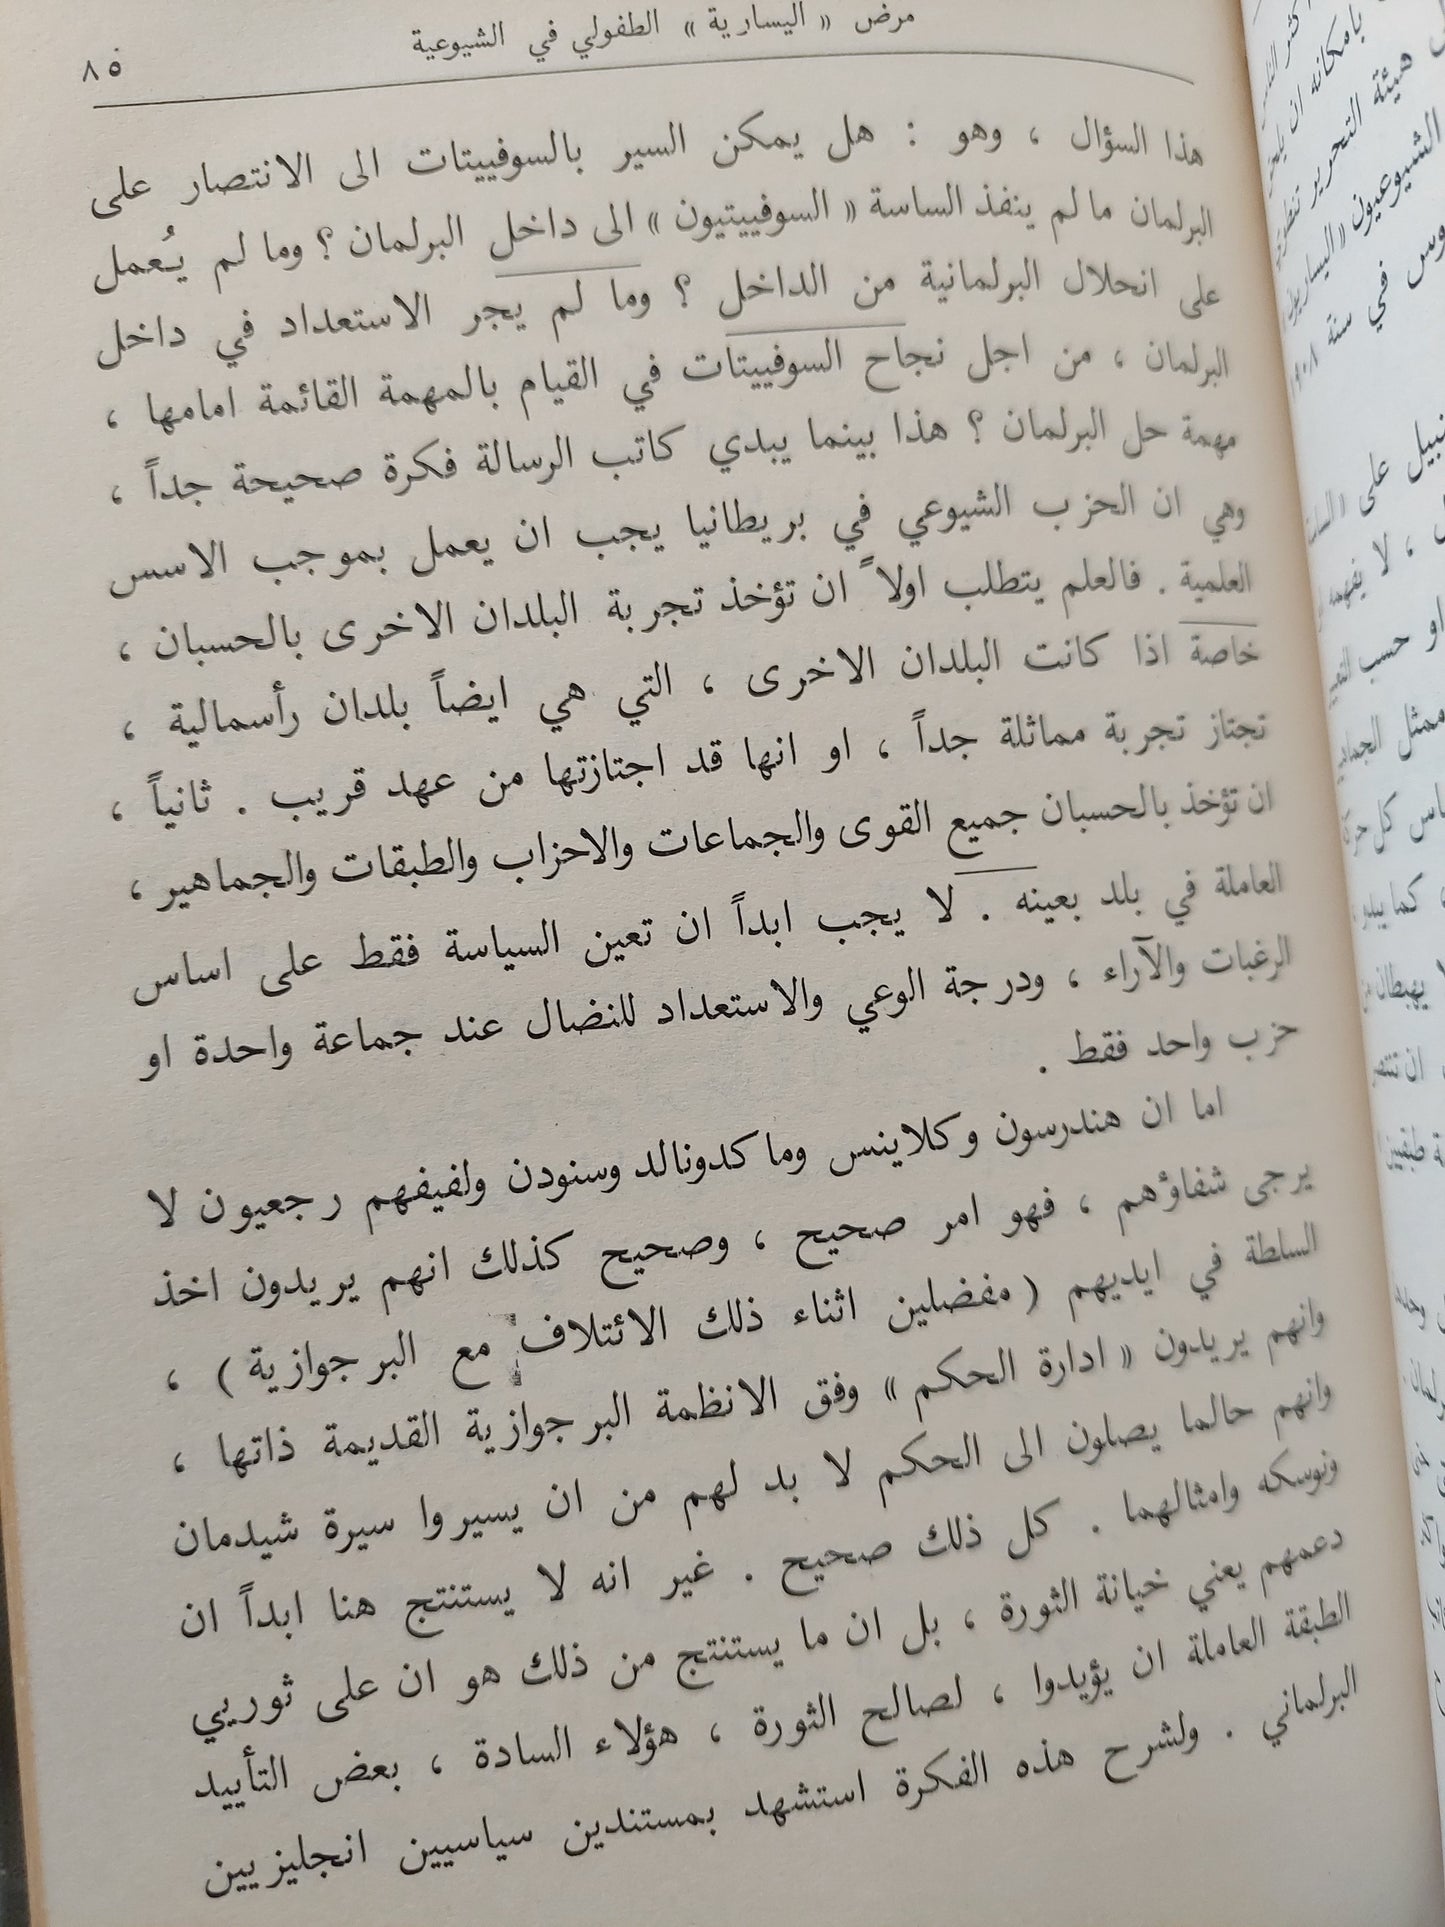 مرض « اليسارية » الطفولي في الشيوعية
٨٥
هذا السؤال ، وهو : هل يمكن السير بالسوفييتات الى الانتصار على
البرلمان ما لم ينفذ الساسة « السوفييتيون » الى داخل البرلمان ؟ وما لم يُعمل
على انحلال البرلمانية من الداخل ؟ وما لم يجر الاستعداد في داخل
البرلمان ، من اجل نجاح السوفييتات في القيام بالمهمة القائمة امامها ،
مهمة حل البرلمان ؟ هذا بينما يبدي كاتب الرسالة فكرة صحيحة جداً ،
وهي ان الحزب الشيوعي في بريطانيا يجب ان يعمل بموجب الاسس
العلمية . فالعلم يتطلب اولاً ان تؤخذ تجربة البلدان الاخرى بالحسبان ،
خاصة اذا كانت البلدان الاخرى ، التي هي ايضاً بلدان رأسمالية ،
تجتاز تجربة مماثلة جداً ، او انها قد اجتازتها من عهد قريب . ثانياً ،
ان تؤخذ بالحسبان جميع القوى والجماعات والاحزاب والطبقات والجماهير ،
العاملة في بلد بعينه . لا يجب ابداً ان تعين السياسة فقط على اساس
الرغبات والآراء ، ودرجة الوعي والاستعداد للنضال عند جماعة واحدة او
حزب واحد فقط .
اما ان هندرسون وكلاينس وماكدونالد وسنودن ولفيفهم رجعيون لا
يرجى شفاؤهم ، فهو امر صحيح ، وصحيح كذلك انهم يريدون اخذ
السلطة في ايديهم ( مفضلين اثناء ذلك الائتلاف مع البرجوازية ) ،
وانهم يريدون « ادارة الحكم » وفق الانظمة البرجوازية القديمة ذاتها ،
وانهم حالما يصلون الى الحكم لا بد لهم من ان يسيروا سيرة شيدمان
ونوسكه وامثالهما . كل ذلك صحيح . غير انه لا يستنتج هنا ابداً ان
دعمهم يعني خيانة الثورة ، بل ان ما يستنتج من ذلك هو ان على ثوريي
الطبقة العاملة ان يؤيدوا ، لصالح الثورة ، هؤلاء السادة ، بعض التأييد
البرلماني . ولشرح هذه الفكرة استشهد بمستندين سياسيين انجليزيين
بامكانه ان
هيئة التحرير
الشيوعيون « اليساريون
في سنة ١٩٠٨
على
، لا يفهمه
او حسب
كل
، كما يبدو ،